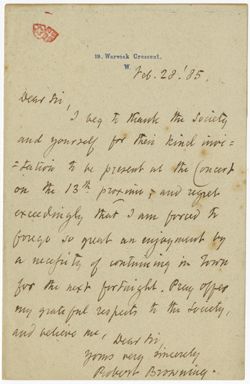 19. Warwick Crescent.
W.
Feb. 28. '85.
Dear Sir,
I beg to thank the Society
and yourself for their kind invi=
=tation to be present at the Concert
on the 13th proximo, and regret
exceedingly that I am forced to
forego so great an enjoyment by
a necessity of continuing in Town
for the next fortnight. Pray offer
my grateful respects to the Society,
and believe me, Dear Sir,
yours very sincerely
Robert Browning.